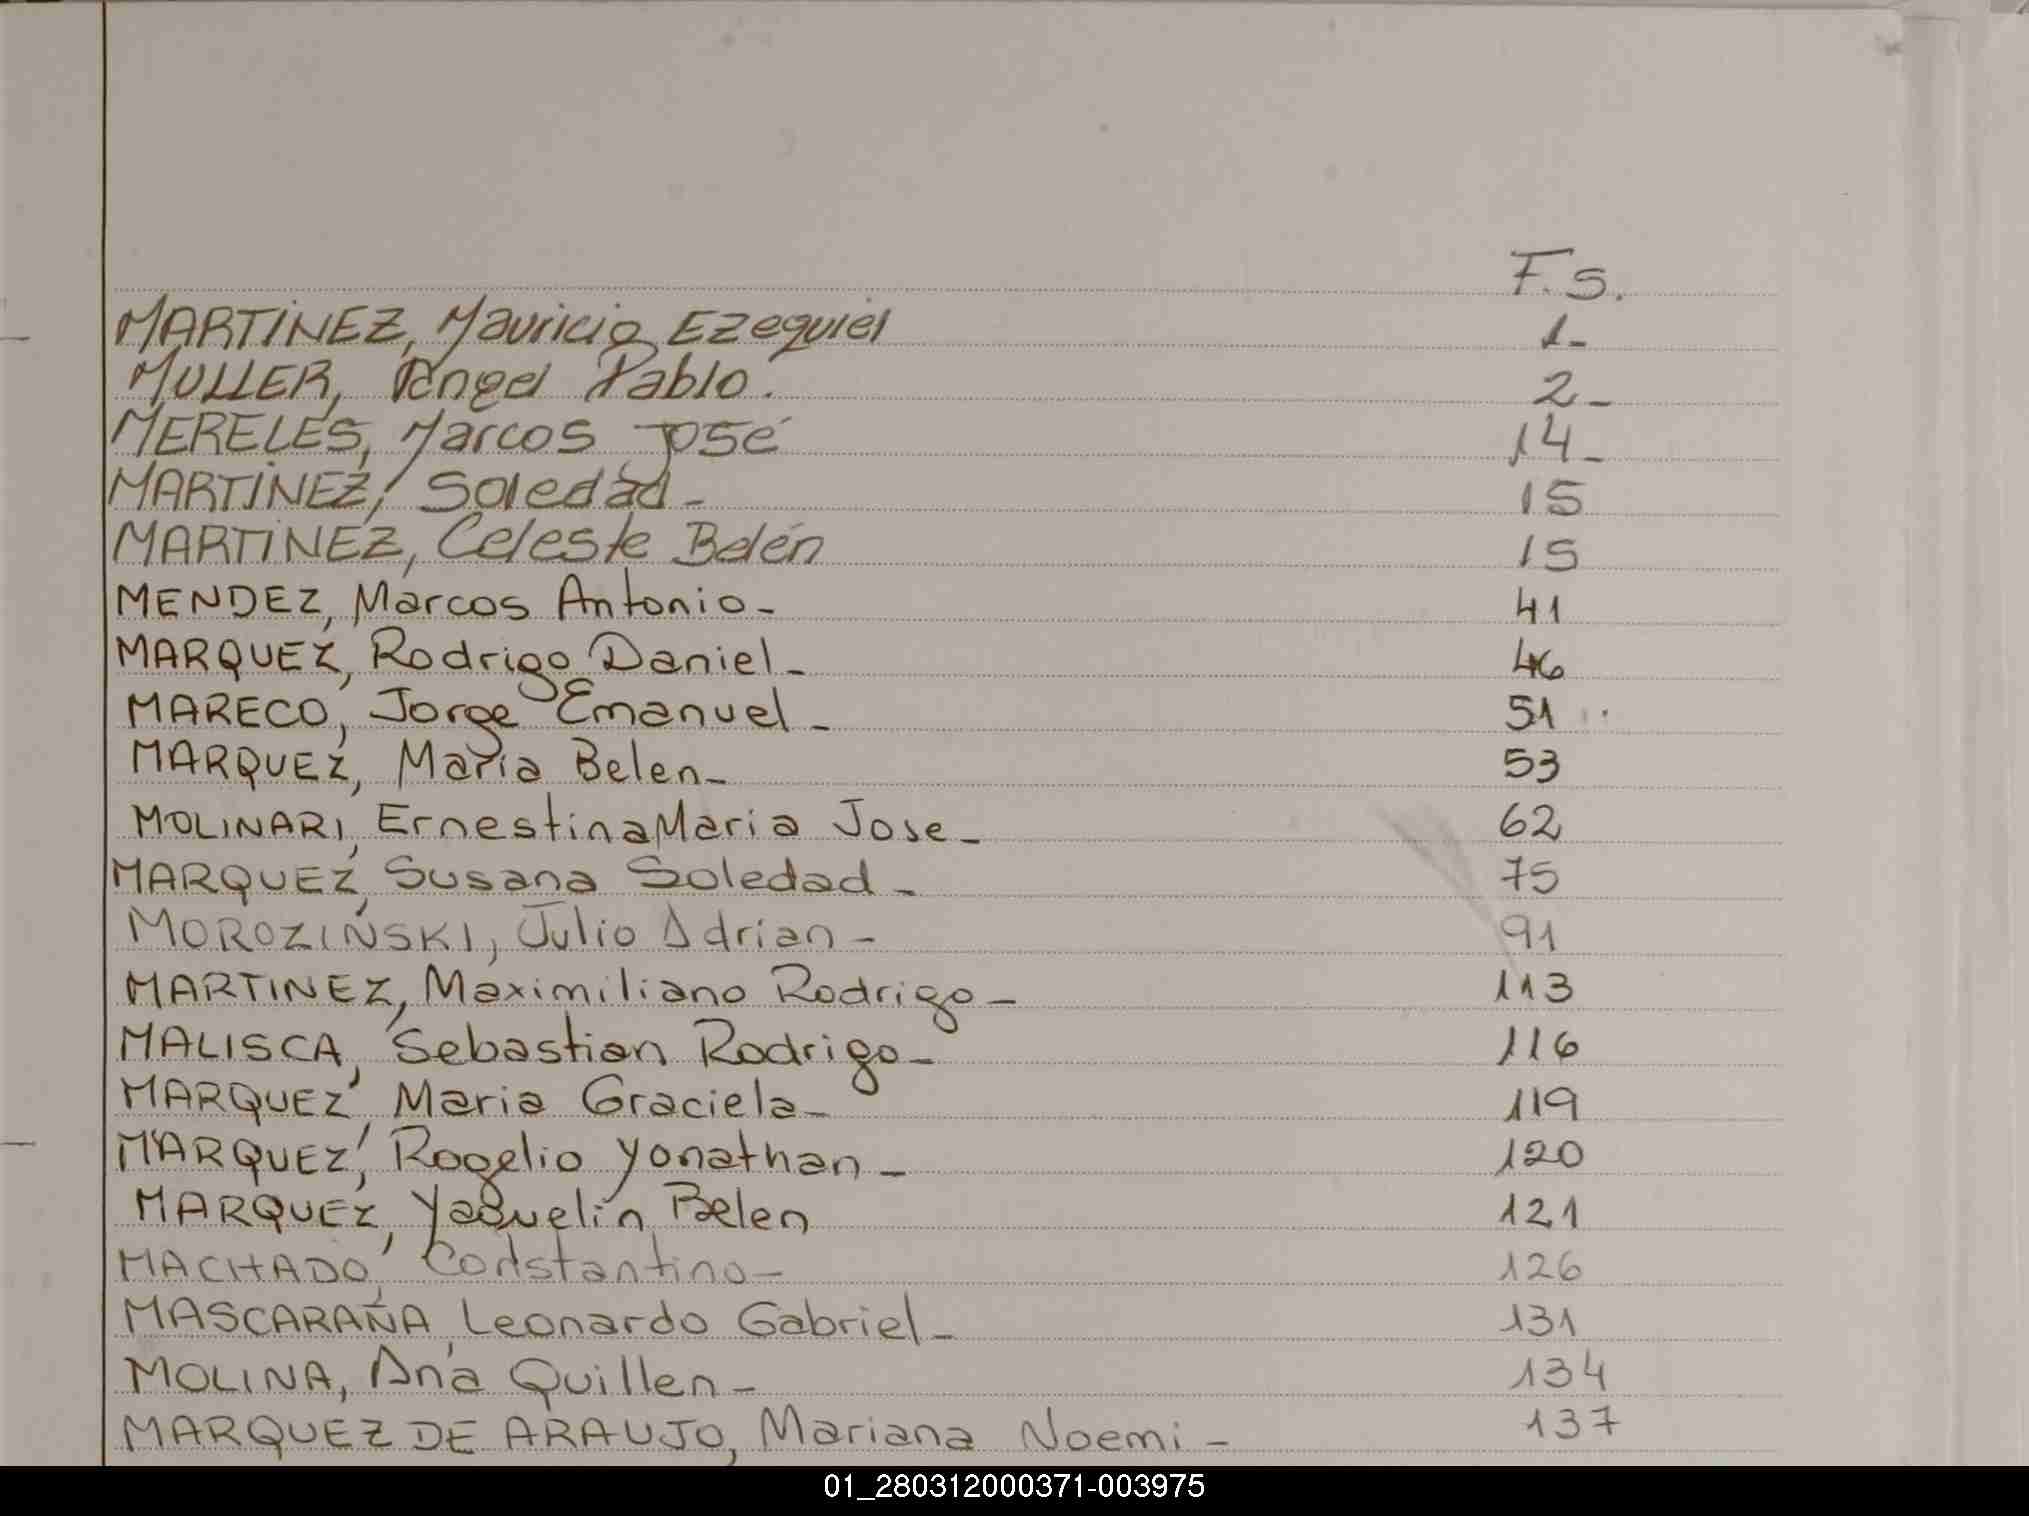 F.S.
MARTINEZ, Mauricio Ezequiel 1-
MULLER, Angel Pablo. 2-
MERELES, Marcos José 14-
MARTINEZ, Soledad - 15
MARTINEZ, Celeste Belén 15
MENDEZ, Marcos Antonio - 41
MARQUEZ, Rodrigo Daniel - 46
MARECO, Jorge Emanuel - 51
MARQUEZ, Maria Belen - 53
MOLINARI, Ernestina Maria Jose - 62
MARQUEZ, Susana Soledad - 75
MOROZIÑSKI, Julio Adrian - 91
MARTINEZ, Maximiliano Rodrigo - 113
MALISCA, Sebastian Rodrigo - 116
MARQUEZ, Maria Graciela - 119
MARQUEZ, Rogelio Yonathan - 120
MARQUEZ, Yaquelin Belen 121
MACHADO, Constantino - 126
MASCARAÑA, Leonardo Gabriel - 131
MOLINA, Ana Quillen - 134
MARQUEZ DE ARAUJO, Mariana Noemi - 137
01_280312000371-003975